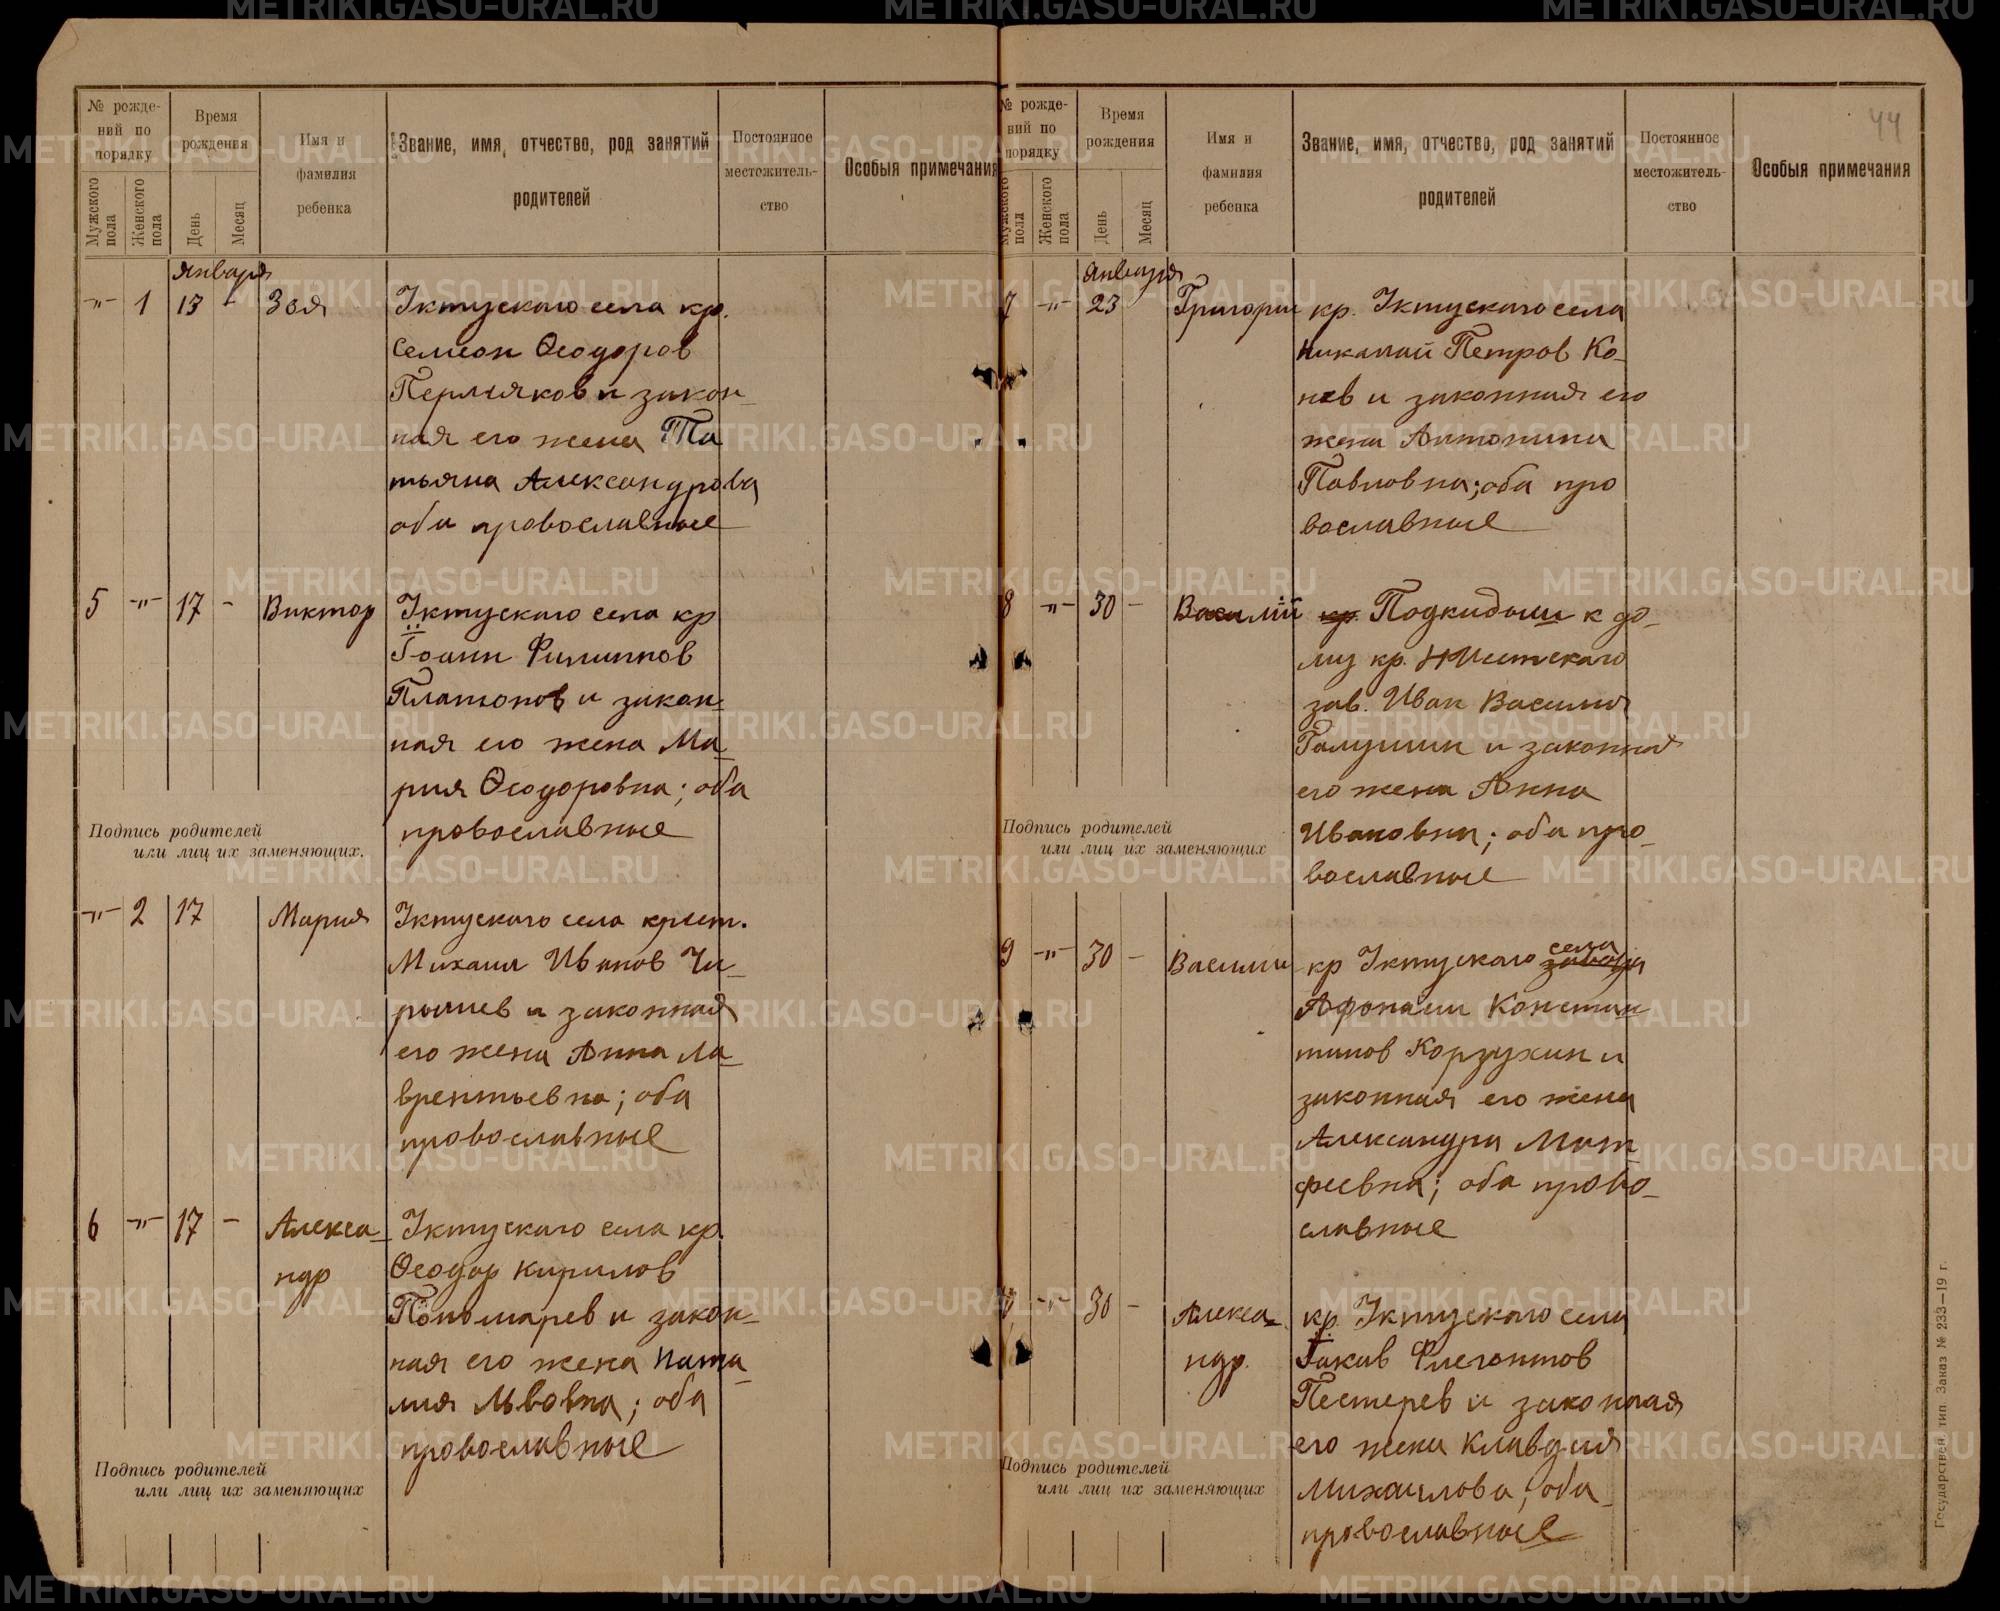 METRIKI.GASO-URAL.RU
44
№ рожде-
ний по
порядку
Мужского пола
Женского пола
Время
рождения
День
Месяц
Имя и
фамилия
ребенка
Звание, имя, отчество, род занятий
родителей
Постоянное
местожитель-
ство
Особыя примечания
января
-"- 1 13 - Зоя
Іктускаго села кр.
Семеон Ѳеодоров
Пермяков и закон-
ная его жена Та
тьяна Александрова
оба православные
5 -"- 17 - Виктор
Іктускаго села кр
Іоанн Филиппов
Платонов и закон-
ная его жена Ма-
рия Ѳеодоровна; оба
православные
Подпись родителей
или лиц их заменяющих.
-"- 2 17 Мария
Іктускаго села крест.
Михаил Иванов Чи-
рышев и законная
его жена Анна Ла-
врентьевна; оба
православные
6 -"- 17 - Алекса-
ндр
Іктускаго села кр.
Ѳеодор Кирилов
Пономарев и закон-
ная его жена Ната-
лия Львовна; оба
православные
Подпись родителей
или лиц их заменяющих
№ рожде-
ний по
порядку
Мужского пола
Женского пола
Время
рождения
День
Месяц
Имя и
фамилия
ребенка
Звание, имя, отчество, род занятий
родителей
Постоянное
местожитель-
ство
Особыя примечания
января
7 -"- 23 Григории
кр. Іктускаго села
Николай Петров Ко-
нев и законная его
жена Антонина
Павловна; оба про
вославные
8 -"- 30 - Василий
кр. Подкидыш к до-
му кр. Н Исетскаго
зав. Иван Василия
Галушин и законная
его жена Анна
Ивановна; оба про-
вославные
Подпись родителей
или лиц их заменяющих
9 -"- 30 - Василии
кр Іктускаго завода
села
Афонасии Констан
тинов Корзухин и
законная его жена
Александра Мат-
феевна; оба право-
славные
-"- 30 - Алекса-
ндр.
кр. Іктускаго села
Іаков Флегонтов
Пестерев и законная
его жена Клавдия
Михаилова; оба
православные
Подпись родителей
или лиц их заменяющих
Государствен. тип. Заказ № 233—19 г.